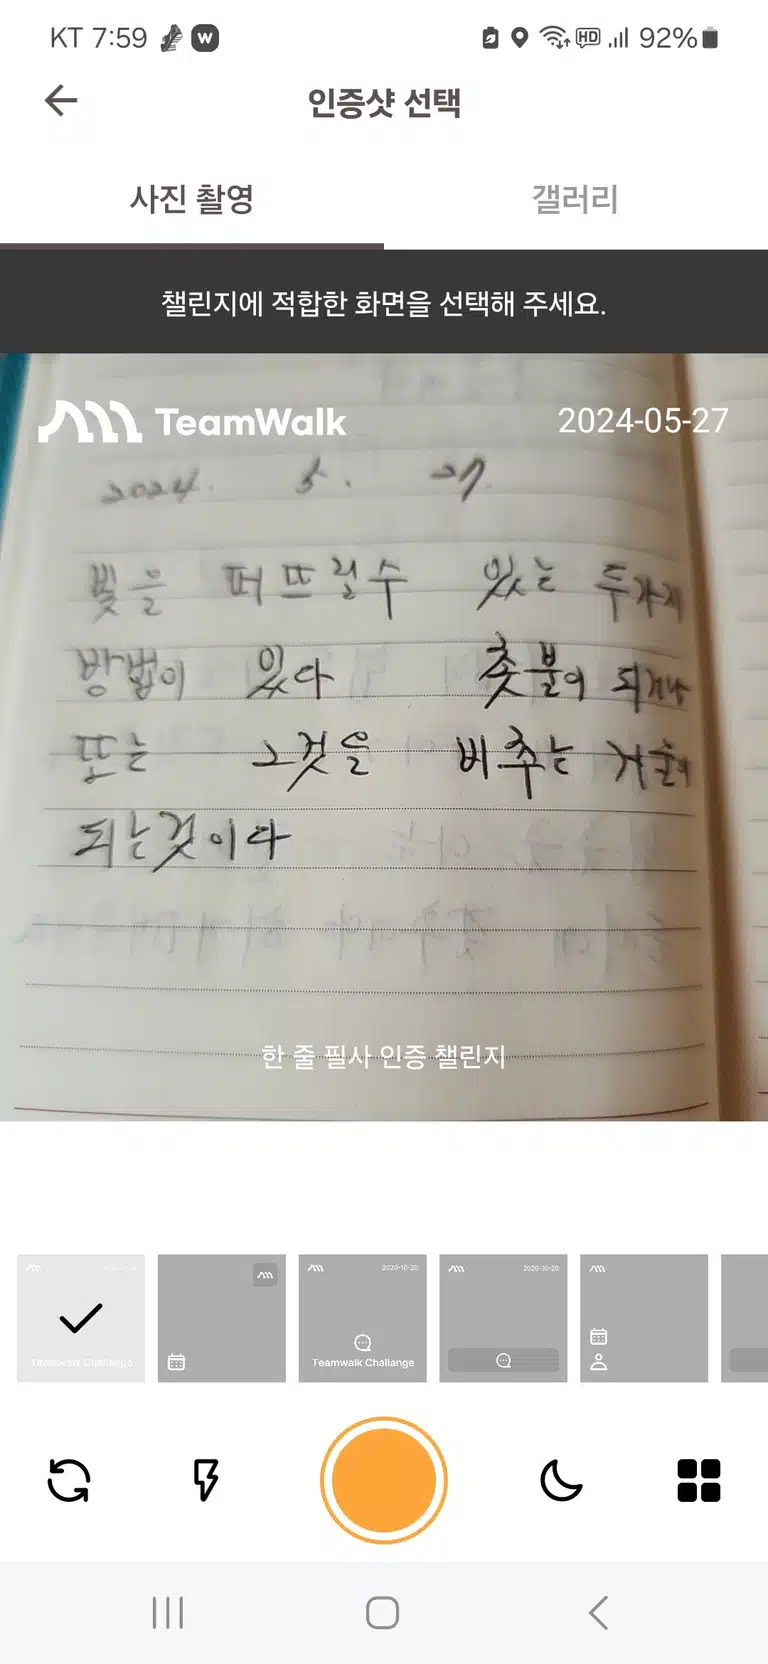 KT 7:59 W HD 92%
인증샷 선택
사진 촬영 갤러리
챌린지에 적합한 화면을 선택해 주세요.
TeamWalk 2024-05-27
2024. 5. 27.
빛을 퍼뜨릴수 있는 두가지
방법이 있다 촛불이 되거나
또는 그것을 비추는 거울이
되는것이다
한 줄 필사 인증 챌린지
2020-10-20 2020-10-20
Teamwalk Challange Teamwalk Challange